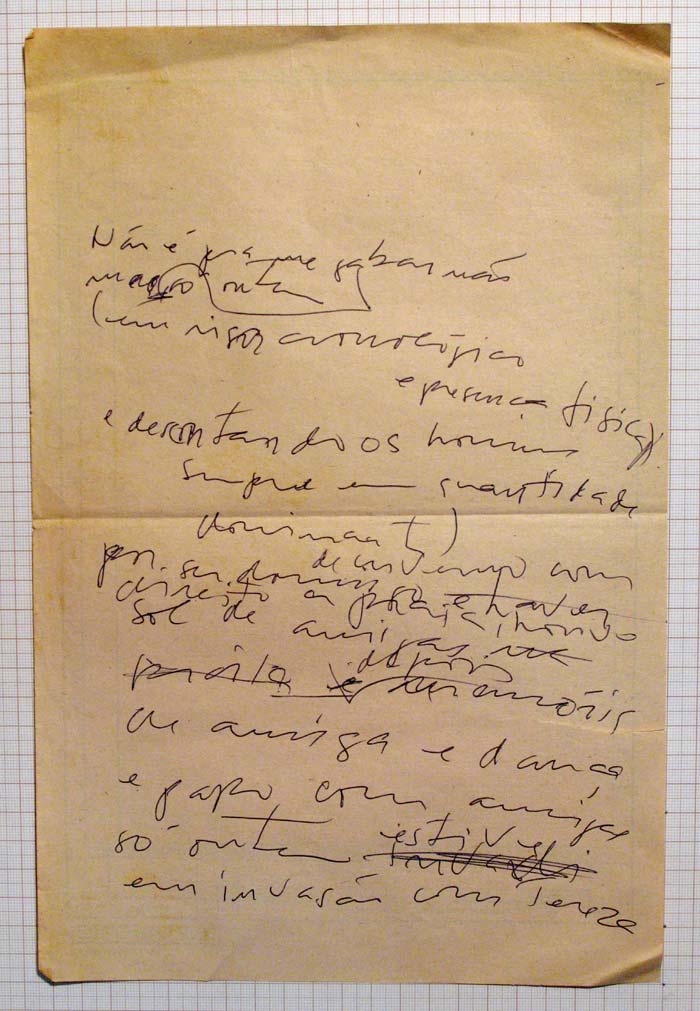 Não é pra me gabar não
mas só ontem
(em rigor cronológico
e presença física)
e descontando os homens
sempre em quantidade
dominant)
por ser domingo de inverno com
direito a praia, houve
sol de amigas
depois
de amiga e dança
e papo com amigas
só ontem estive
em invasão com Tereza